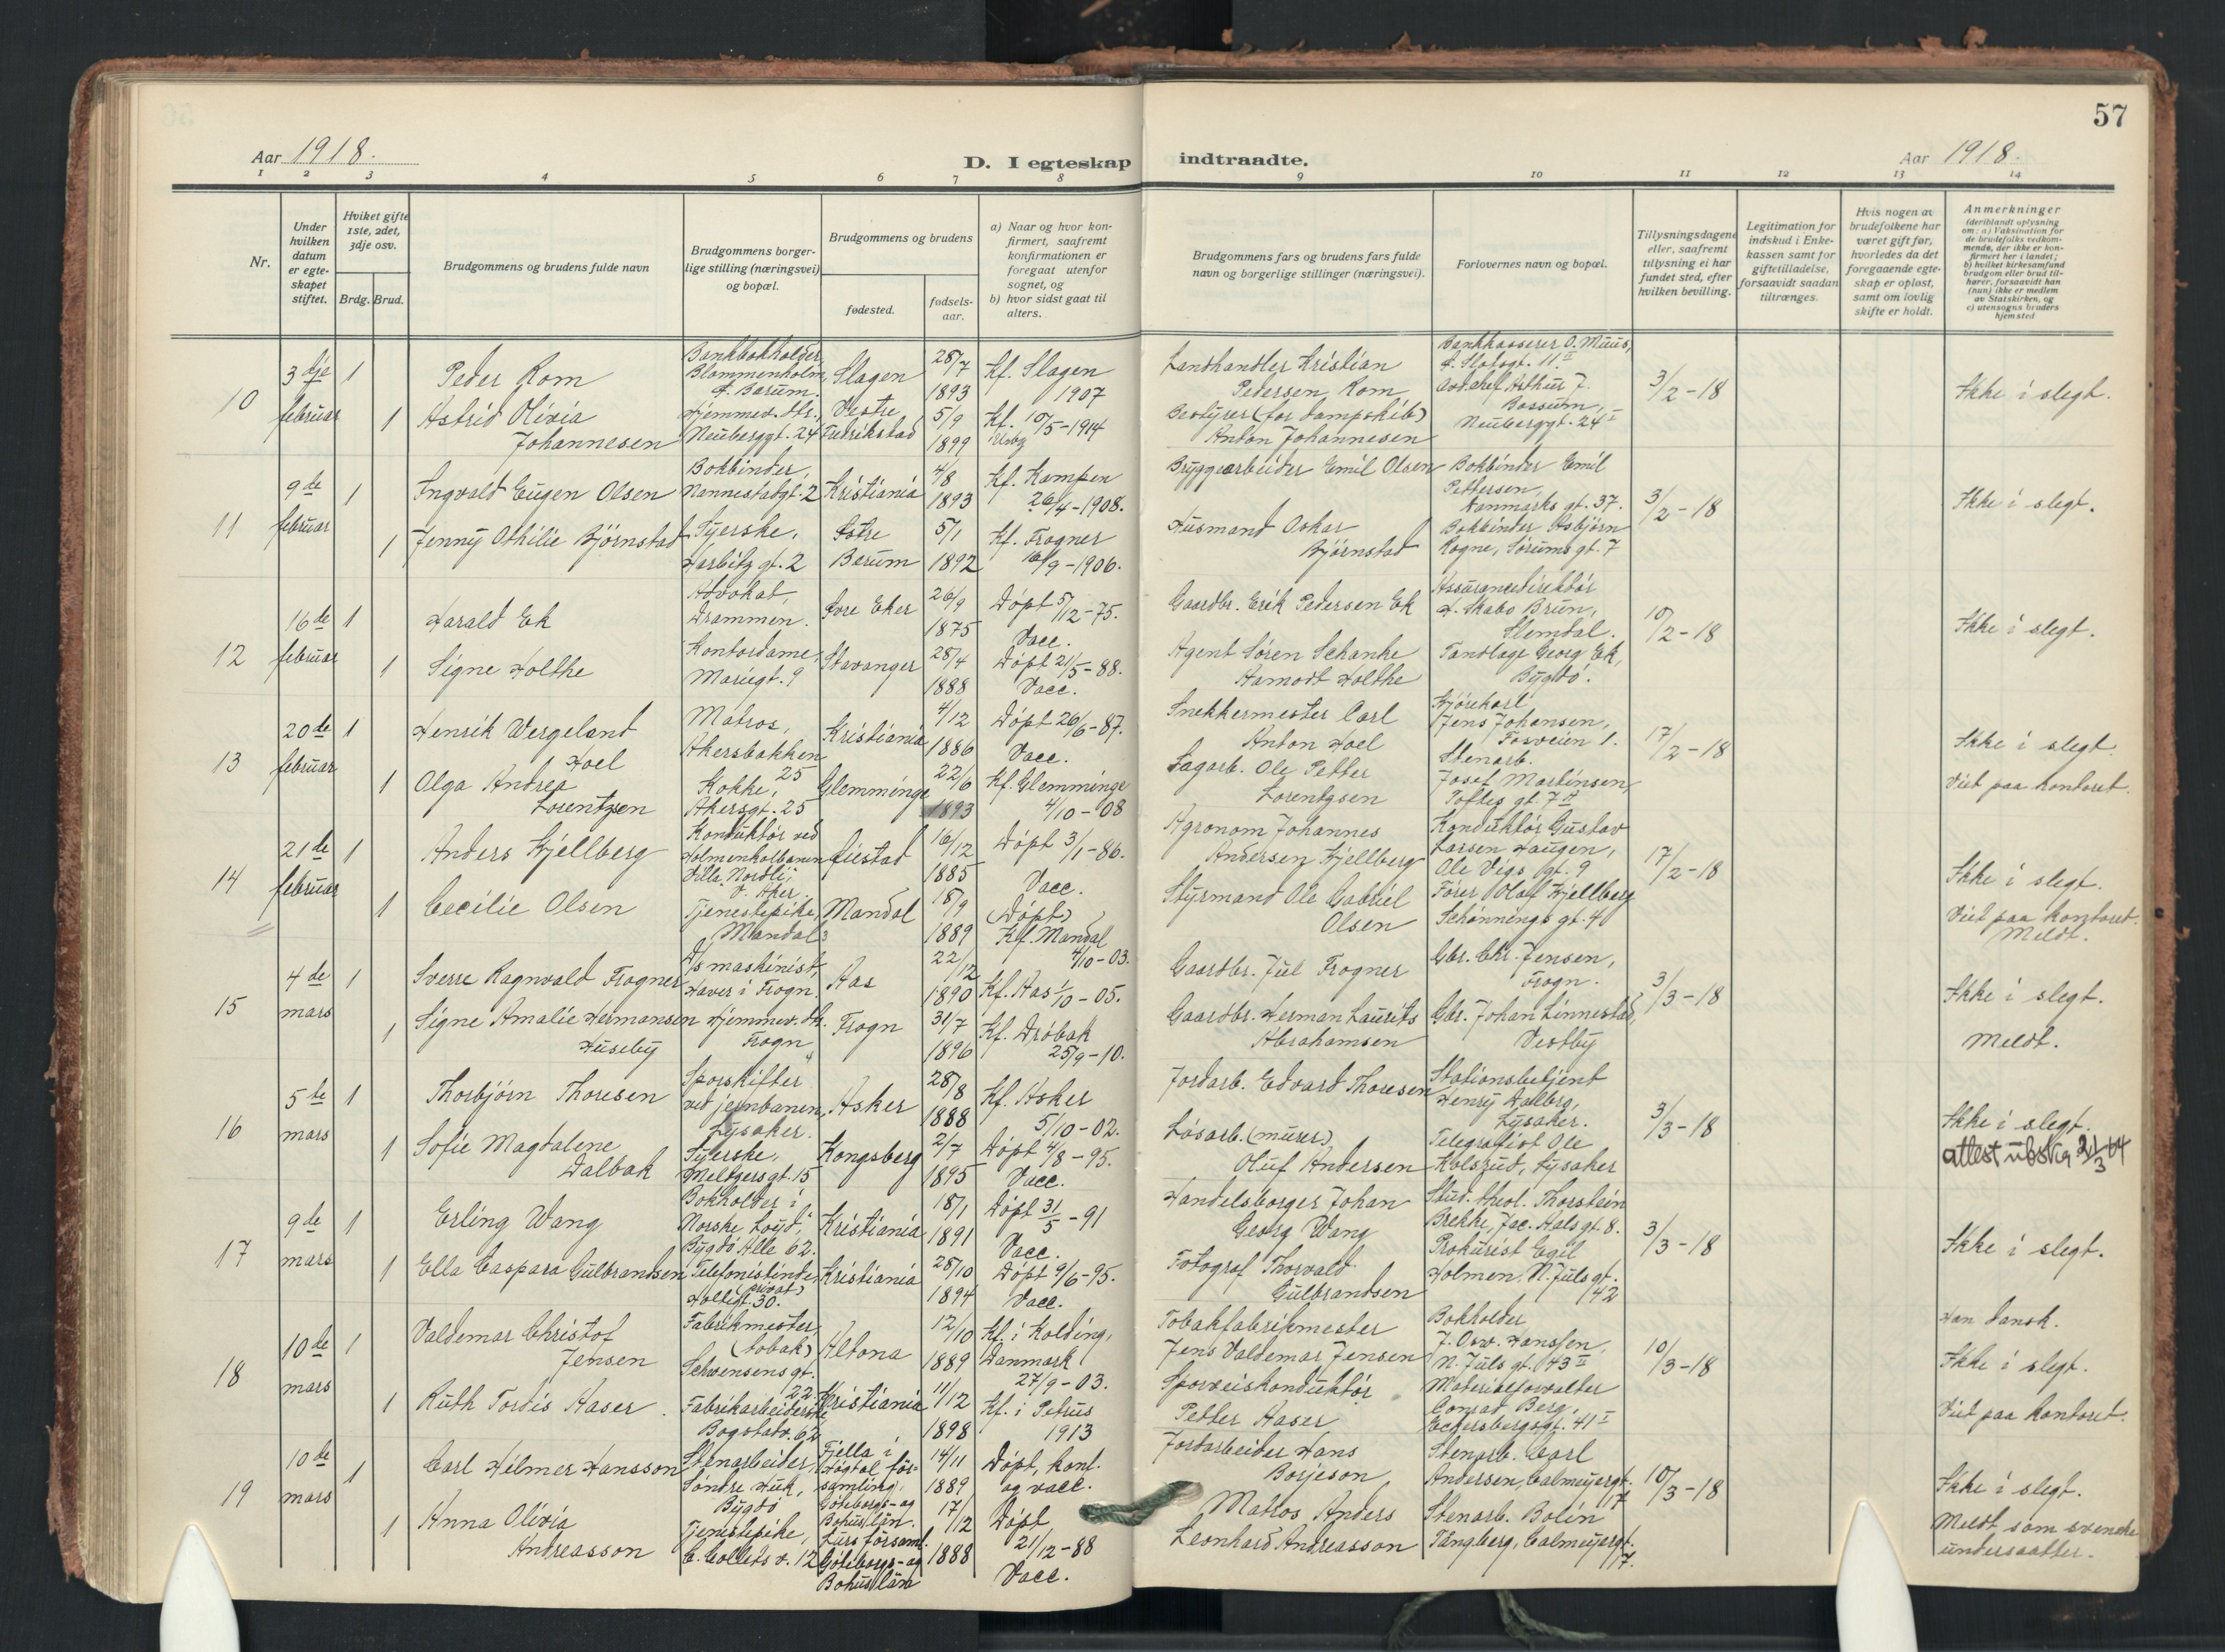 57
Aar 1918.
D. I egteskap indtraadte.
Aar 1918.
1 2 3 4 5 6 7 8 9 10 11 12 13 14
Nr.
Under hvilken datum er egteskapet stiftet.
Hviket gifte 1ste, 2det, 3dje osv.
Brdg. Brud.
Brudgommens og brudens fulde navn
Brudgommens borgerlige stilling (næringsvei) og bopæl.
Brudgommens og brudens
fødested.
fødselsaar.
a) Naar og hvor konfirmert, saafremt konfirmationen er foregaat utenfor sognet, og
b) hvor sidst gaat til alters.
Brudgommens fars og brudens fars fulde navn og borgerlige stillinger (næringsvei).
Forlovernes navn og bopæl.
Tillysningsdagene eller, saafremt tillysning ei har fundet sted, efter hvilken bevilling.
Legitimation for indskud i Enkekassen samt for giftetilladelse, forsaavidt saadan tiltrænges.
Hvis nogen av brudefolkene har været gift før, hvorledes da det foregaaende egteskap er opløst, samt om lovlig skifte er holdt.
Anmerkninger
(deriblandt oplysning om: a) Vaksination for de brudefolks vedkommende, der ikke er konfirmert her i landet; b) hvilket kirkesamfund brudgom eller brud tilhører, forsaavidt han (hun) ikke er medlem av Statskirken, og c) utensogns bruders hjemsted
10
3dje februar
1 Peder Rom
Bankbokholder, Blommenholm, Ø. Bærum.
Slagen
28/7 1893
Kf. Slagen 1907
Landhandler Kristian Pedersen Rom
Bankkasserer O. Muus, Slotsgt. 11 II
3/2-18
Ikke i slegt.
1 Astrid Olivia Johannesen
Hjemmev. dtr. Neuberggt. 24
Vestre Fredrikstad
5/9 1899
Kf. 10/5-1914
Bestyrer (for dampskib) Anton Johannesen
Avd.chef Arthur J. Bossum, Neuberggt. 24 I
11
9de februar
1 Ingvald Eugen Olsen
Bokbinder, Nannestadgt. 2
Kristiania
4/8 1893
Kf. Kampen 26/4-1908.
Bryggearbeider Emil Olsen
Bokbinder Emil Pettersen, Danmarks gt. 37.
3/2-18
Ikke i slegt.
1 Jenny Othilie Björnstad
Syerske, Harbitz gt. 2
Østre Bærum
5/1 1892
Kf. Frogner 16/9-1906.
Husmand Oskar Björnstad
Bokbinder Asbjørn Rogne, Sörums gt. 7
12
16de februar
1 Harald Ek
Advokat, Drammen.
Øvre Eker
26/9 1875
Döpt 5/12-75. Vacc.
Gaardbr. Erik Pedersen Ek
Assurancedirektör H. Skabo Brun, Slemdal.
10/2-18
Ikke i slegt.
1 Signe Holthe
Kontordame, Mariigt. 9
Stavanger
28/4 1888
Döpt 21/5-88. Vacc.
Agent Sören Schanke Aamodt Holthe
Tandlæge Georg Ek, Bygdö.
13
20de februar
1 Henrik Vergeland Hoel
Matros, Akersbakken 25
Kristiania
4/12 1886
Döpt 26/6-87. Vacc.
Snekkermester Carl Anton Hoel
Kjörekarl Jens Johansen, Fosveien 1.
17/2-18
Ikke i slegt.
Viet paa kontoret.
1 Olga Andrea Lorentzen
Kokke, Akersgt. 25
Glemminge
22/6 1893
Kf. Glemminge 4/10-08
Sagarb. Ole Petter Lorentzen
Stenarb. Josef Martinsen, Toftes gt. 7 II
14
21de februar
1 Anders Kjellberg
Konduktör ved Holmenkolbanen, Villa "Nordli", V. Aker.
16/12 1885
Döpt 3/1-86. Vacc.
Agronom Johannes Andersen Kjellberg
Konduktör Gustav Larsen Haugen, Ole Vigs gt. 9
17/2-18
Ikke i slegt.
Viet paa kontoret.
Meldt.
1 Cecilie Olsen
Tjenestepike, Mandal
Mandal
18/9 1889
(Döpt) Kf. Mandal 4/10-03.
Styrmand Ole Gabriel Olsen
Förer Olaf Kjellberg Schönnings gt. 40
15
4de mars
1 Sverre Ragnvald Frogner
D/s maskinist, Haver i Frogn.
Aas
22/12 1890
Kf. Aas 1/10-05.
Gaardbr. Jul Frogner
Gbr. Chr. Jensen, Frogn.
3/3-18
Ikke i slegt.
Meldt.
1 Signe Amalie Hermansen Huseby
Hjemmev. dtr. Frogn
Frogn
31/7 1896
Kf. Dröbak 25/9-10.
Gaardbr. Herman Laurits Abrahamsen
Gbr. Johan Linnestad, Vestby
16
5te mars
1 Thorbjörn Thoresen
Sporskifter ved jernbanen, Lysaker.
Asker
28/8 1888
Kf. Asker 5/10-02.
Jordarb. Edvard Thoresen
Stationsbetjent Henry Aalberg, Lysaker.
3/3-18
Ikke i slegt.
1 Sofie Magdalene Dalbak
Syerske, Meltzersgt. 15
Kongsberg
2/7 1895
Döpt 4/8-95. Vacc.
Lösarb. (murer) Oluf Andersen
Telegrafist Ole Kolsrud, Lysaker
17
9de mars
1 Erling Wang
Bokholder i "Norske Loyd", Bygdö Alle 62.
Kristiania
18/1 1891
Döpt 31/5-91 Vacc.
Handelsborger Johan Georg Wang
Stud. theol. Thorstein Brekke, Jac. Aals gt. 8.
3/3-18
Ikke i slegt.
1 Ella Caspara Gulbrandsen
Telefonistinde, (privat) Holtegt. 30.
Kristiania
28/10 1894
Döpt 9/6-95. Vacc.
Fotograf Thorvald Gulbrandsen
Prokurist Egil Holmen, N. Juls gt. 42
18
10de mars
1 Valdemar Christof Jensen
Fabrikmester (tobak) Schwensens gt. 22
Altona
12/10 1889
Kf. i Kolding, Danmark 27/9-03.
Tobakfabrikmester Jens Valdemar Jensen
Bokholder J. Osv. Hanssen, N. Juls gt. 43 II
10/3-18
Han dansk.
Ikke i slegt.
Viet paa kontoret.
1 Ruth Tordis Haser
Fabrikarbeiderske Bogstadv. 62
Kristiania
11/12 1898
Kf. i Petrus 1913
Sporveiskonduktör Petter Haser
Materialforvalter Conrad Berg, Eckersbergsgt. 41 I
19
10de mars
1 Carl Hilmer Hansson
Stenarbeider, Söndre Huk, Bygdö
Fjella i Högtal församling, Göteborgs- og Bohus län.
14/11 1889
Döpt, konf. og vacc.
Jordarbeider Hans Borjeson
Stenarb. Carl Andersen, Calmeyergt. 17
10/3-18
Ikke i slegt.
Meldt som svenske undersaatter.
1 Anna Olivia Andreasson
Tjenestepike, C. Colletts v. 12
Lurs församl. Göteborgs- og Bohus län
17/12 1888
Döpt 21/12-88 Vacc.
Matros Anders Leonhard Andreasson
Stenarb. Bolin Tångberg, Calmeyergt. 17.